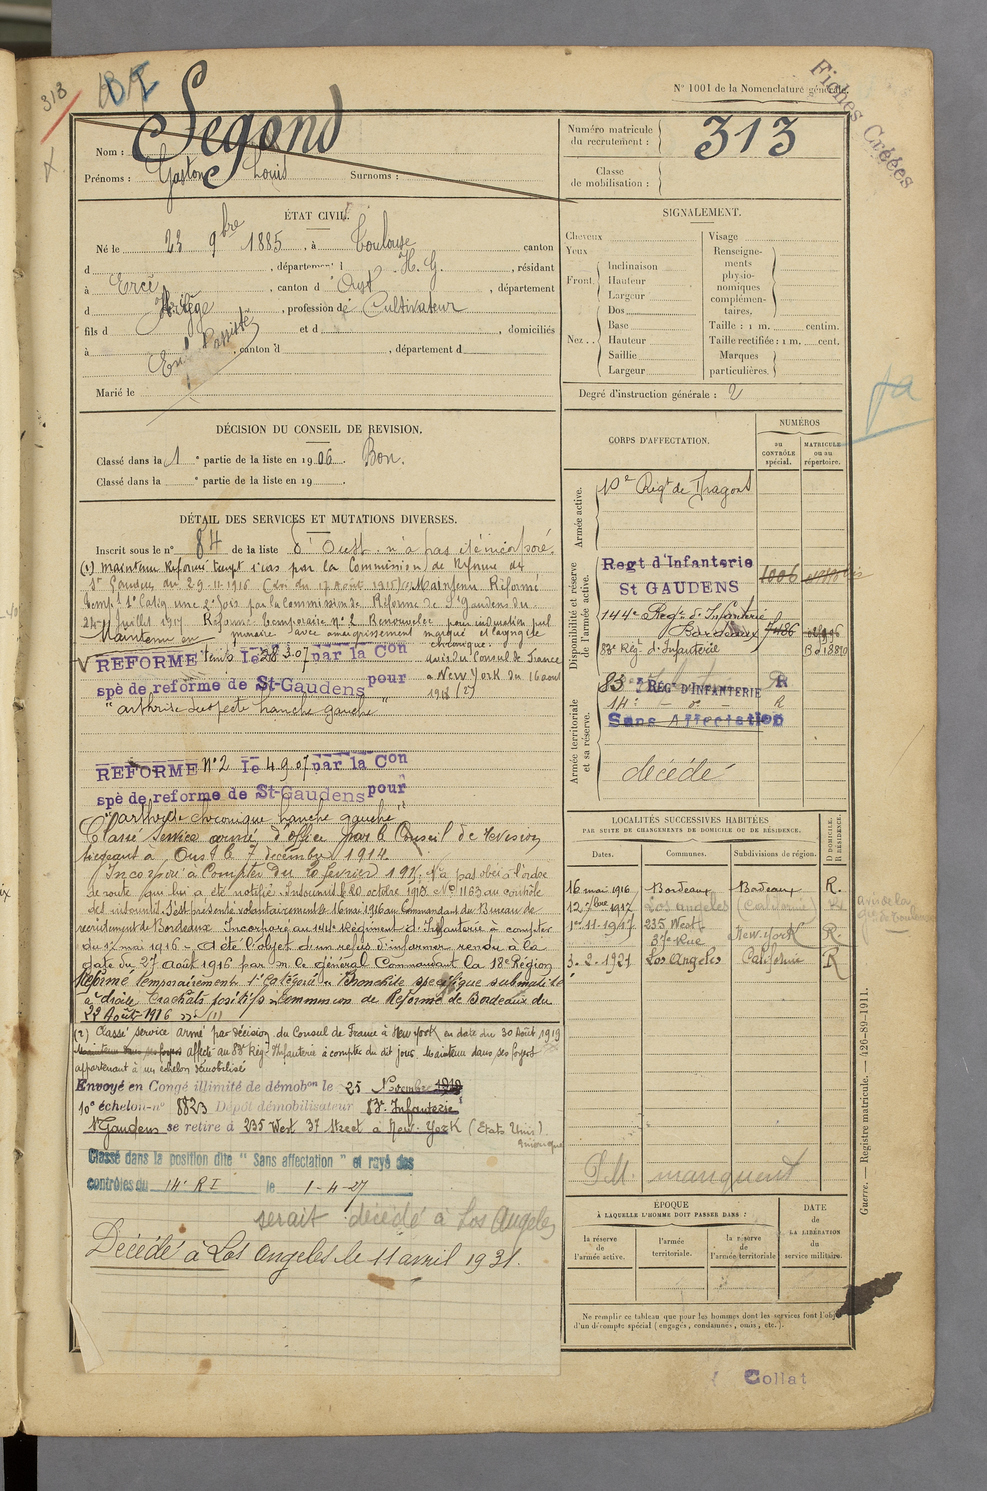 313
N° 1001 de la Nomenclature générale.
Fiches Créées
Nom : Segond
Prénoms : Gaston Louis Surnoms :
Numéro matricule du recrutement : 313
Classe de mobilisation :
ÉTAT CIVIL.
Né le 23 9bre 1885, à Toulouse canton
d , département d H. G. , résidant
à Ercé , canton d'Oust , département
d Ariège , profession de Cultivateur
fils d et d , domiciliés
à , canton d , département d
Marié le
SIGNALEMENT.
Cheveux
Yeux
Front
Inclinaison
Hauteur
Largeur
Nez
Dos
Base
Hauteur
Saillie
Largeur
Visage
Renseignements physionomiques complémentaires,
Taille : 1 m. centim.
Taille rectifiée : 1 m. cent.
Marques particulières.
Degré d'instruction générale : 2
DÉCISION DU CONSEIL DE REVISION.
Classé dans la 1e partie de la liste en 1906. Bon.
Classé dans la e partie de la liste en 19 .
DÉTAIL DES SERVICES ET MUTATIONS DIVERSES.
Inscrit sous le n° 84 de la liste d'Oust. n'a pas été incorporé.
(1) Maintenu Réformé temp 1e cas par la Commission de Réforme de
St Gaudens du 29.11.1916 (Loi du 17 août 1915) Maintenu Réformé
temp. 1e Catég une 2e fois par la Commission de Réforme de St Gaudens du
24 Juillet 1917 Réforme temporaire n° 2 Renouvelée pour induration pul
monaire avec amaigrissement marqué et laryngite
chronique.
avis du Consul de France
à New York du 16 août
1918 (2)
Maintenu en
REFORME temp le 28 3.07 par la Con
spé de reforme de St-Gaudens pour
"arthrite suspecte hanche gauche"
REFORME N° 2 le 4 9 07 par la Con
spé de reforme de St-Gaudens pour
"arthrite chronique hanche gauche"
Classé Service armé d'office par le Conseil de Revision
siégeant à Oust le 7 décembre 1914.
Incorporé à Compter du 20 février 1915. N'a pas obéi à l'ordre
de route qui lui a été notifié. Insoumis le 20 octobre 1915 N° 1163 au contrôle
des insoumis. S'est présenté volontairement le 16 mai 1916 au Commandant du Bureau de
recrutement de Bordeaux. Incorporé au 144e Régiment d'Infanterie à compter
du 17 mai 1916 - A été l'objet d'un refus d'informer rendu à la
date du 27 Août 1916 par M. le général Commandant la 18e Région
Réformé temporairement 1e Catégorie "Bronchite spécifique submatité
à droite Crachats positifs" Commission de Réforme de Bordeaux du
22 Août 1916 (1)
(2) Classé service armé par décision du Consul de France à New York en date du 30 Août 1919
affecté au 83e Rég. Infanterie à compter du dit jour. Maintenu dans ses foyers
appartenant à un échelon démobilisé
Envoyé en Congé illimité de démobon le 25 Novembre 1919
10e échelon-n° 8823 Dépôt démobilisateur 83e Infanterie
St Gaudens se retire à 235 West 37 Street à New-York (Etats Unis)
Classé dans la position dite "Sans affectation" et rayé des
contrôles du 14e R I le 1-4-27
serait décédé à Los Angeles
Décédé à Los Angeles le 11 avril 1931.
CORPS D'AFFECTATION.
NUMÉROS
au CONTRÔLE spécial.
MATRICULE ou au répertoire.
Armée active.
10e Régt de Dragons
Disponibilité et réserve de l'armée active.
Regt d'Infanterie
St GAUDENS
1006
144e Régt d'Infanterie
Bordeaux 7486
83e Rég. d'Infanterie
Armée territoriale et sa réserve.
83e REGt D'INFANTERIE R
14e - do - R
Sans Affectation
décédé
LOCALITÉS SUCCESSIVES HABITÉES
PAR SUITE DE CHANGEMENTS DE DOMICILE OU DE RÉSIDENCE.
Dates. Communes. Subdivisions de région. D. DOMICILE. R. RÉSIDENCE.
16 mai 1916 Bordeaux Bordeaux R.
12 7bre 1917 Los angeles (Californie) R
1er 11-1917 235 West 37e Rue New-York R.
3-2-1921 Los Angeles Californie R
avis de la
gie de Toulouse
P.M. manquent
ÉPOQUE
À LAQUELLE L'HOMME DOIT PASSER DANS :
la réserve de l'armée active.
l'armée territoriale.
la réserve de l'armée territoriale
DATE de LA LIBÉRATION du service militaire.
Ne remplir ce tableau que pour les hommes dont les services font l'objet
d'un décompte spécial (engagés, condamnés, omis, etc.).
Guerre. — Registre matricule. — 426-89-1911.
Collat